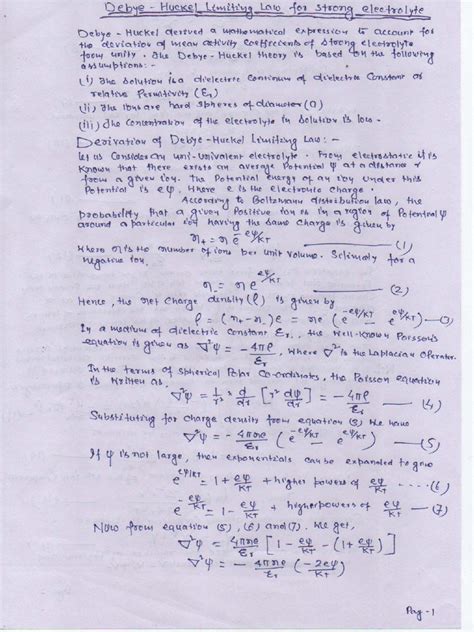 Debye - Huckel Limiting Law for strong electrolyte
Debye - Huckel derived a mathematical expression to account for
the deviation of mean activity coefficients of strong electrolyte
from unity. The Debye-Huckel theory is based on the following
assumptions:-
(i) The solution is a dielectric continum of dielectric constant or
relative permitivity (εr)
(ii) The ions are hard spheres of diameter (a)
(iii) The concentration of the electrolyte in solution is low.
Derivation of Debye-Huckel Limiting Law:-
Let us consider an uni-univalent electrolyte. From electrostatic it is
known that there exists an average potential ψ at a distance r
from a given ion. The potential energy of an ion under this
potential is eψ, where e is the electronic charge.
According to Boltzmann distribution law, the
probability that a given positive ion is in a region of potential ψ
around a particular ion having the same charge is given by
n+ = n e^(eψ/KT) ——— (1)
where n is the number of ions per unit volume. Similarly for a
negative ion.
n- = n e^(eψ/KT) ——— (2)
Hence, the net charge density (ρ) is given by
ρ = (n+ - n-) e = ne (e^(-eψ/KT) - e^(eψ/KT)) — (3)
In a medium of dielectric constant εr, the well-known Poisson's
equation is given as ∇²ψ = - 4πρ/εr, where ∇² is the Laplacian operator.
In the terms of spherical polar co-ordinates, the Poisson equation
is written as,
∇²ψ = 1/r² d/dr [r² dψ/dr] = - 4πρ/εr — (4)
Substituting for charge density from equation (3) we have
∇²ψ = - 4πne/εr (e^(-eψ/KT) - e^(eψ/KT)) — (5)
If ψ is not large, then exponentials can be expanded to give
e^(eψ/KT) = 1 + eψ/KT + higher powers of eψ/KT ..... (6)
e^(-eψ/KT) = 1 - eψ/KT + higher powers of eψ/KT — (7)
Now from equation (5), (6) and (7). We get,
∇²ψ = 4πne/εr [1 - eψ/KT - (1 + eψ/KT)]
∇²ψ = - 4πne/εr (-2eψ/KT)
Pag-1